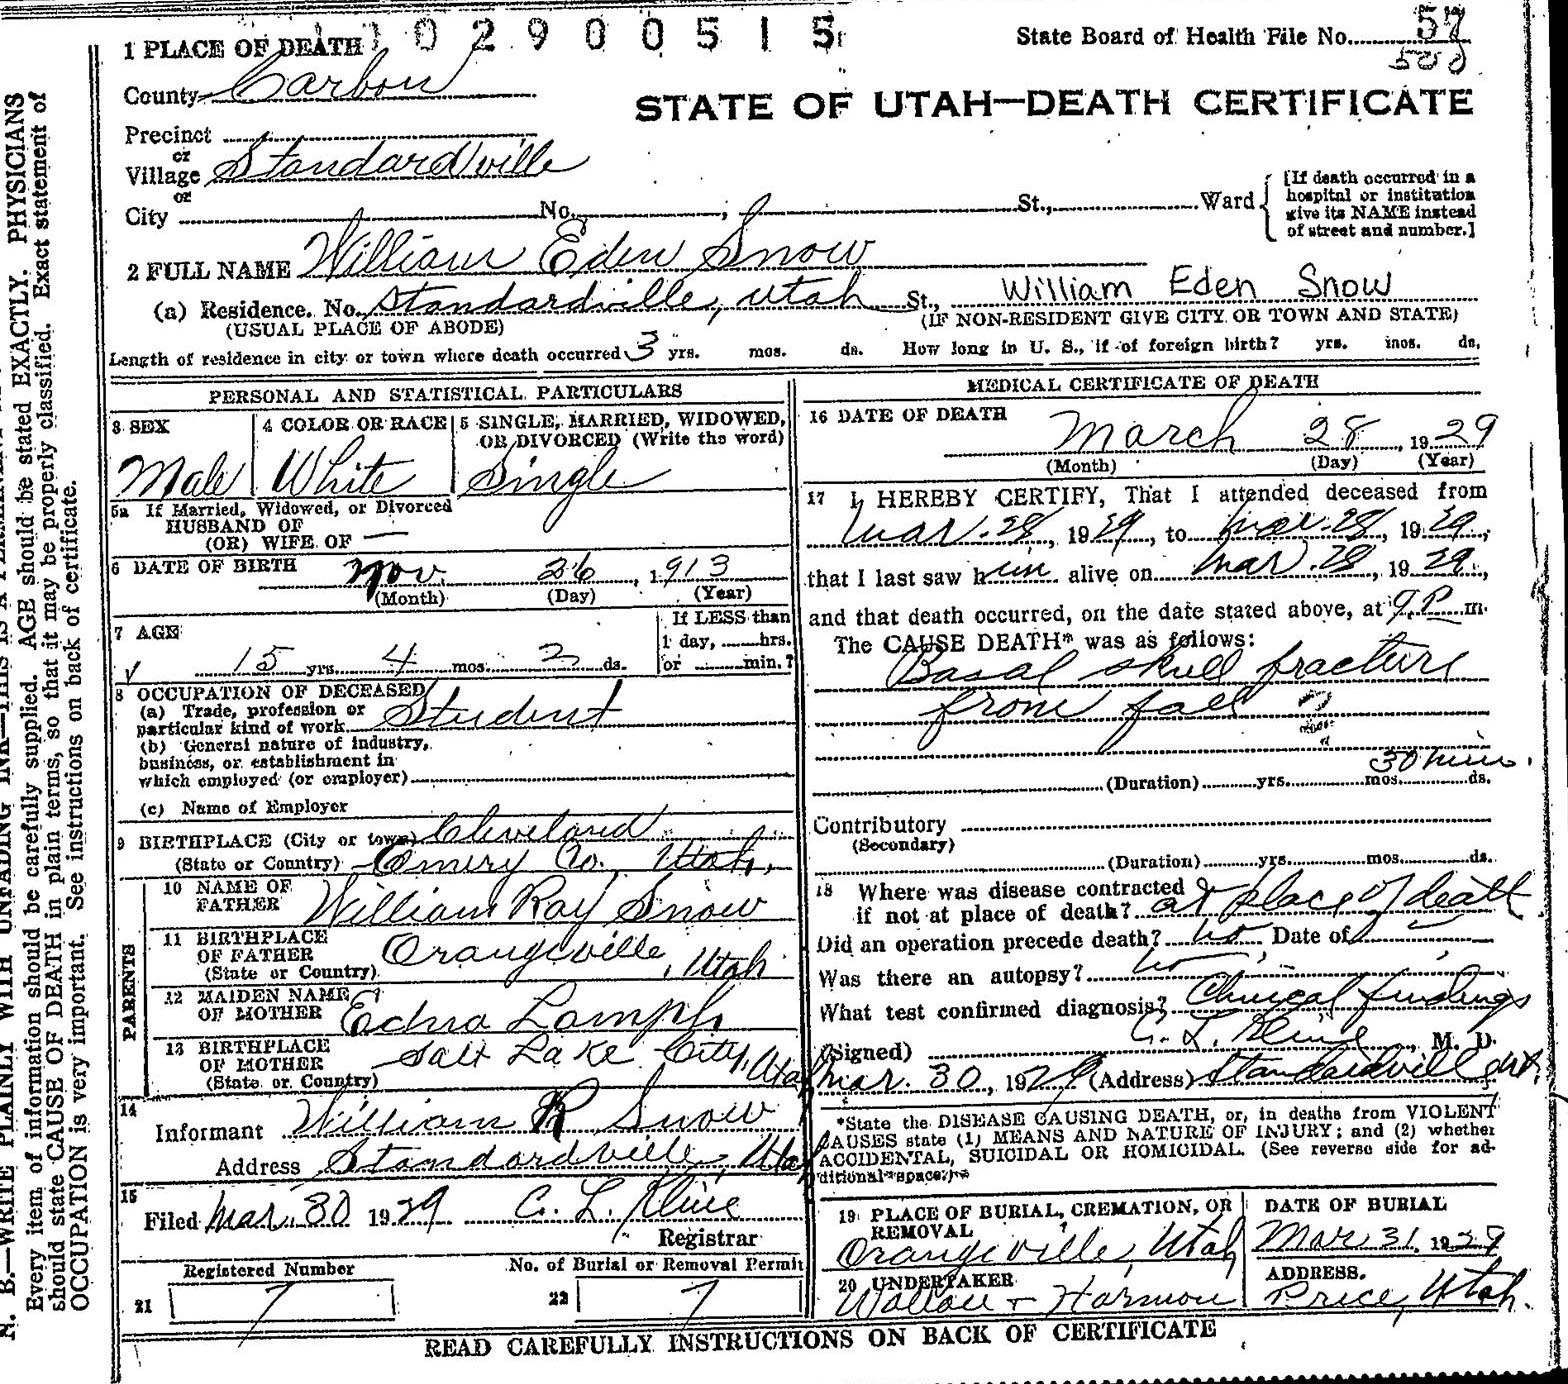 1 PLACE OF DEATH 0 2 9 0 0 5 1 5
State Board of Health File No. 57
508
County Carbon
STATE OF UTAH—DEATH CERTIFICATE
Precinct
or
Village Standardville
or
City No. , St., Ward
[If death occurred in a
hospital or institution
give its NAME instead
of street and number.]
2 FULL NAME William Eden Snow
(a) Residence. No. Standardville, Utah St., William Eden Snow
(USUAL PLACE OF ABODE) (IF NON-RESIDENT GIVE CITY OR TOWN AND STATE)
Length of residence in city or town where death occurred 3 yrs. mos. ds. How long in U. S., if of foreign birth? yrs. mos. ds.
PERSONAL AND STATISTICAL PARTICULARS
3 SEX
Male
4 COLOR OR RACE
White
5 SINGLE, MARRIED, WIDOWED,
OR DIVORCED (Write the word)
Single
5a If Married, Widowed, or Divorced
HUSBAND OF
(OR) WIFE OF —
6 DATE OF BIRTH Nov. 26, 1913
(Month) (Day) (Year)
7 AGE
15 yrs. 4 mos. 2 ds.
If LESS than
1 day, hrs.
or min.?
8 OCCUPATION OF DECEASED
(a) Trade, profession or
particular kind of work Student
(b) General nature of industry,
business, or establishment in
which employed (or employer)
(c) Name of Employer
9 BIRTHPLACE (City or town) Cleveland
(State or Country) Emery Co., Utah,
PARENTS
10 NAME OF
FATHER William Ray Snow
11 BIRTHPLACE
OF FATHER
(State or Country) Orangeville, Utah
12 MAIDEN NAME
OF MOTHER Edna Lamph
13 BIRTHPLACE
OF MOTHER
(State or Country) Salt Lake City, Utah
14
Informant William R Snow
Address Standardville, Utah
15
Filed Mar. 30 1929 C. L. Kline
Registrar
Registered Number
21 7
No. of Burial or Removal Permit
22 7
MEDICAL CERTIFICATE OF DEATH
16 DATE OF DEATH
March 28, 1929
(Month) (Day) (Year)
17 I HEREBY CERTIFY, That I attended deceased from
Mar. 28, 1929, to Mar. 28, 1929,
that I last saw him alive on Mar. 28, 1929,
and that death occurred, on the date stated above, at 9 P. m.
The CAUSE DEATH* was as follows:
Basal skull fracture
from fall
(Duration) yrs. mos. ds. 30 min.
Contributory
(Secondary)
(Duration) yrs. mos. ds.
18 Where was disease contracted
if not at place of death? at place of death
Did an operation precede death? no Date of —
Was there an autopsy? no
What test confirmed diagnosis? Clinical findings
(Signed) C. L. Kline, M. D.
Mar. 30, 1929 (Address) Standardville Ut.
*State the DISEASE CAUSING DEATH, or, in deaths from VIOLENT
CAUSES state (1) MEANS AND NATURE OF INJURY; and (2) whether
ACCIDENTAL, SUICIDAL OR HOMICIDAL. (See reverse side for ad-
ditional space.)*
19 PLACE OF BURIAL, CREMATION, OR
REMOVAL
Orangeville, Utah
DATE OF BURIAL
Mar 31, 1929
20 UNDERTAKER
Wallace & Harmon
ADDRESS.
Price, Utah.
READ CAREFULLY INSTRUCTIONS ON BACK OF CERTIFICATE
N. B.—WRITE PLAINLY WITH UNFADING INK—THIS IS A PERMANENT
Every item of information should be carefully supplied. AGE should be stated EXACTLY. PHYSICIANS
should state CAUSE OF DEATH in plain terms, so that it may be properly classified. Exact statement of
OCCUPATION is very important. See instructions on back of certificate.